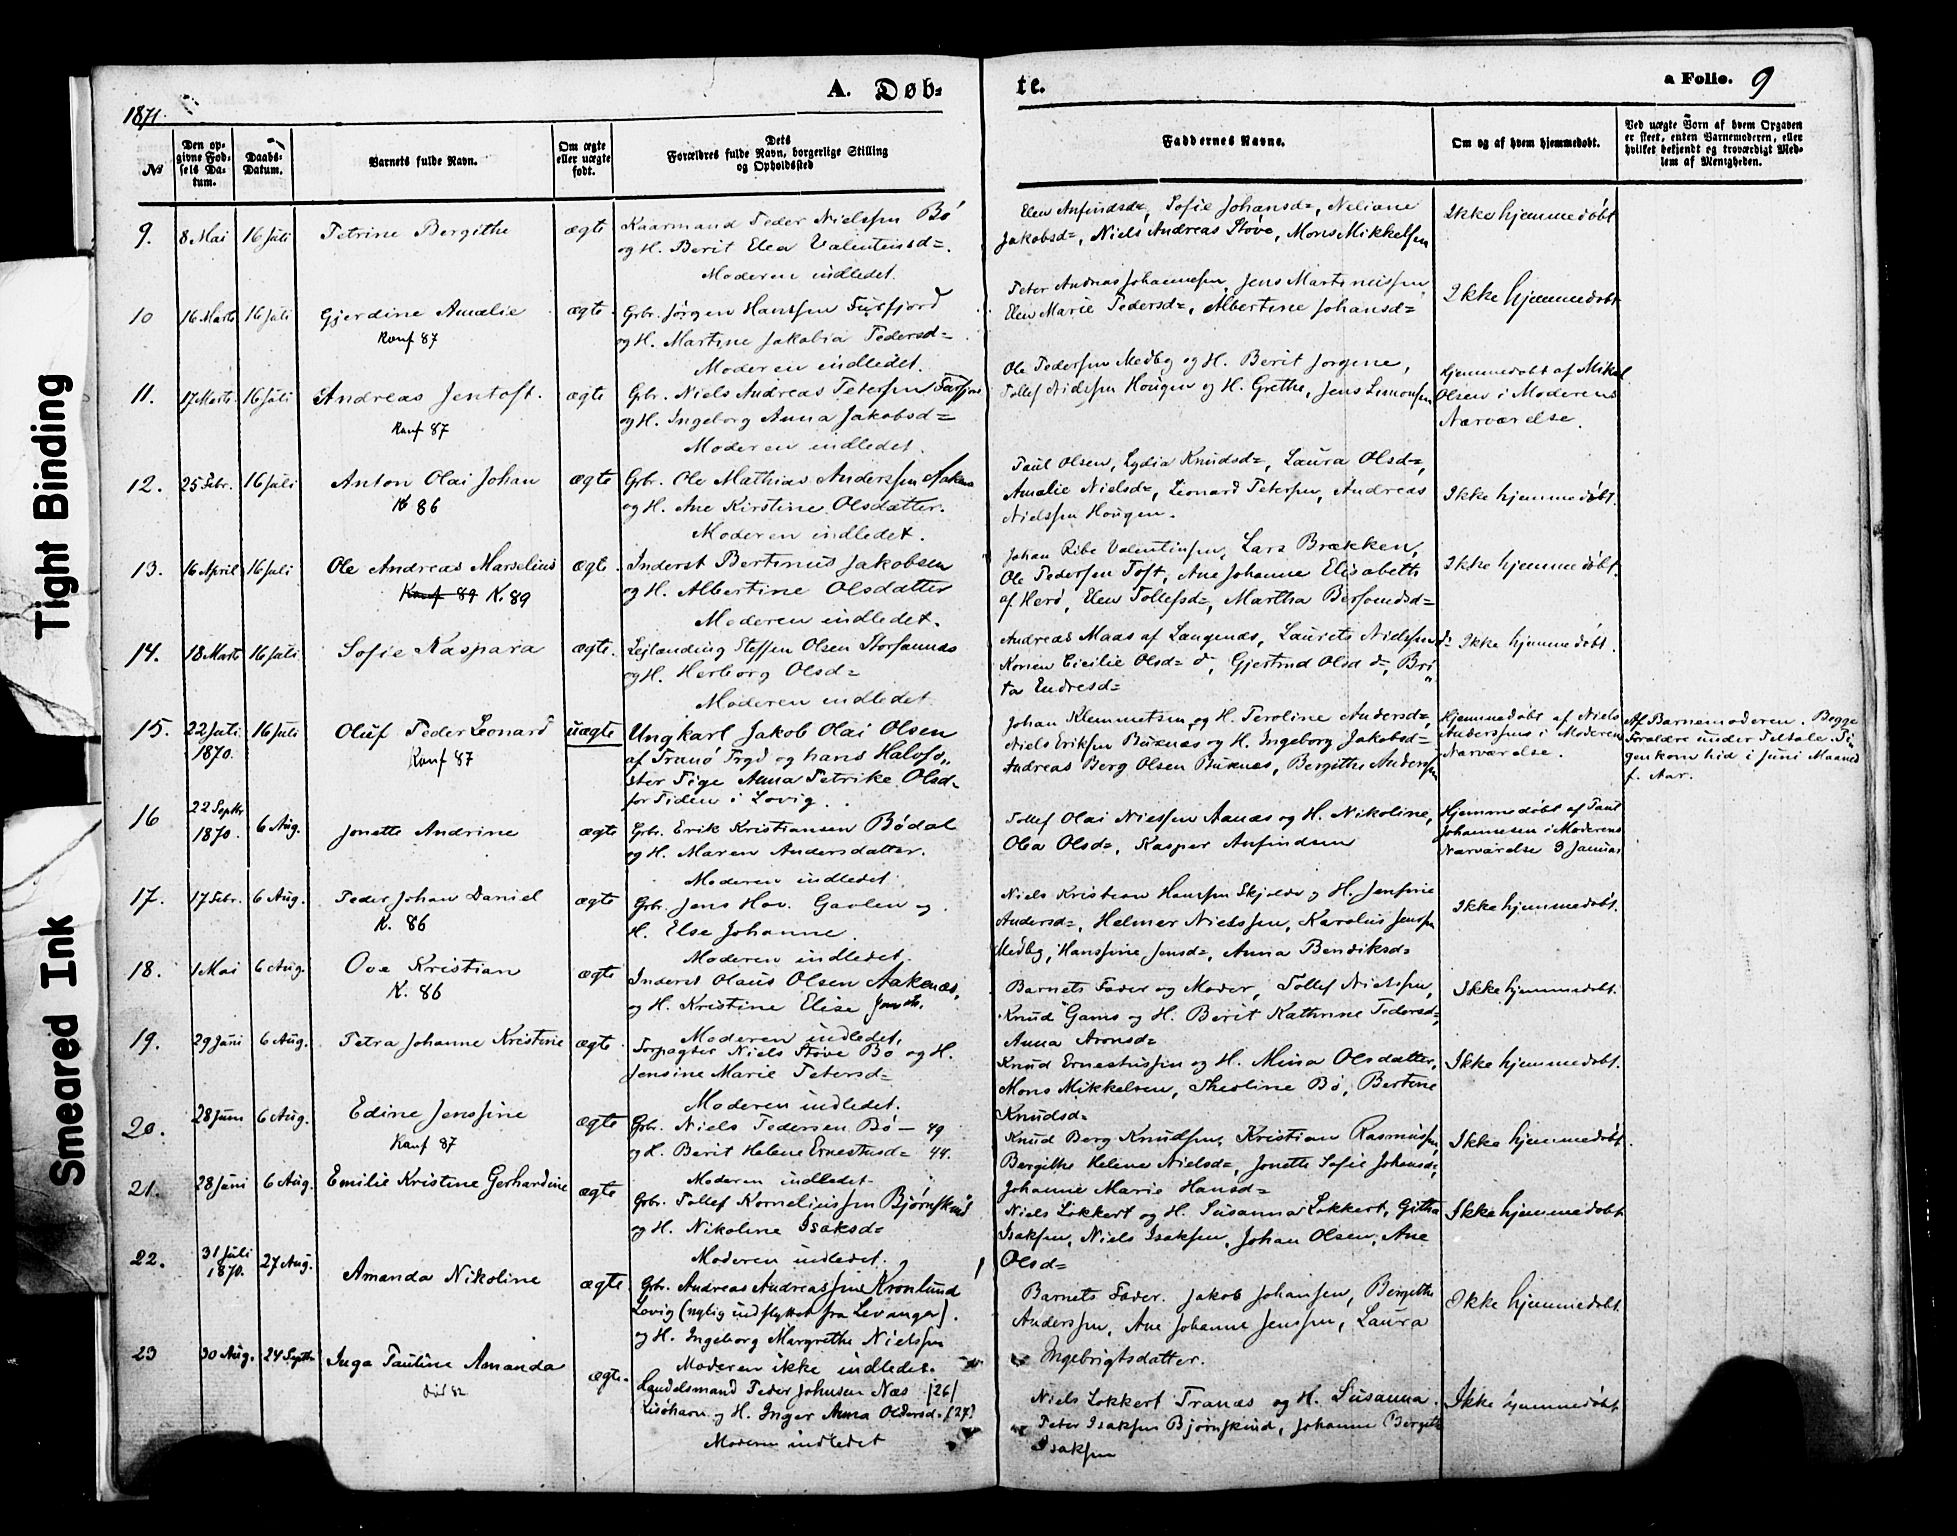 Tight Binding
Smeared Ink
1871.
A. Døb=
te.
a Folio. 9
№
Den op-
givne Fød-
sels Da-
tum.
Daabs-
Datum.
Barnets fulde Navn.
Om ægte
eller uægte
født.
Dets
Forældres fulde Navn, borgerlige Stilling
og Opholdssted
Faddernes Navne.
Om og af hvem hjemmedøbt.
Ved uægte Børn af hvem Opgaven
er skeet, enten Barnemoderen, eller
hvilket bekjendt og troværdigt Med-
lem af Menigheden.
9. 8 Mai 16 Juli Petrine Bergithe ægte
Kaarmand Peder Nielssen Bø
og H. Berit Elea Valentinsd=.
Moderen indledet.
Elen Anfindsd=, Sofie Johansd=, Neliane
Jakobsd=, Niels Andreas Støve, Mons Mikkelsen
Ikke hjemmedøbt
10 16 Marts 16 Juli Gjerdine Amalie
Konf 87
ægte
Grb. Jørgen Hanssen Fusfjord
og H. Martine Jakobia Pedersd=
Moderen indledet.
Peter Andreas Johannessen, Jens Martinussen
Elen Marie Pedersd=, Albertine Johansd=
Ikke hjemmedøbt
11. 17 Marts 16 Juli Andreas Jentoft.
Konf 87
ægte
Grb. Niels Andreas Petersen
og H. Ingeborg Anna Jakobsd=
Moderen indledet.
Ole Pedersen Medby og H. Berit Jorgine,
Tollef Nielssen Hougen og H. Grethe, Jens Simonsen
Hjemmedøbt af Mikal
Olsen i Moderens
Nærværelse.
12. 25 Febr. 16 Juli Anton Olai Johan
K 86
ægte
Grb. Ole Mathias Anderssen Aakenæs
og H. Ane Kirstine Olsdatter.
Moderen indledet.
Paul Olsen, Lydia Knudsd=, Laura Olsd=,
Amalie Nielsd=, Leonard Petersen, Andreas
Nielssen Hougen.
Ikke hjemmedøbt.
13. 16 April 16 Juli Ole Andreas Marselius
Konf 89 K. 89
ægte
Inderst Bertinus Jakobsen
og H. Albertine Olsdatter
Moderen indledet.
Johan Ribe Valentinsen, Lars Brækken,
Ole Pedersen Toft, Ane Johanne Elisabeth
af Herø, Elen Tollefsd=, Martha Bersvendsd=
Ikke hjemmedøbt.
14. 18 Marts 16 Juli Sofie Kaspara ægte.
Lejlænding Steffen Olsen Storsannæs
og H. Herborg Olsd=
Moderen indledet
Andreas Maas af Langenæs, Laurits Nielssen d=
Norien Cicilie Olsd= d, Gjertrud Olsd d=, Bri„
ta Endresd=
Ikke hjemmedøbt.
15. 22 Juli
1870.
16 Juli Oluf Peder Leonard
Konf 87
uægte
Ungkarl Jakob Olai Olsen
af Tranø Prgd og hans Halvsø„
ster Pige Anna Petrike Olsd=
for Tiden i Lovig.
Johan Klemmetsen og H. Peroline Andersd=,
Niels Eriksen Buknæs og H. Ingeborg Jakobsd=
Andreas Berg Olsen Buknæs, Bergithe Anderssen
Hjemmedøbt af Niels
Anderssens i Moderens
Nærværelse.
Af Barnemoderen. Begge
Forældre under Tiltale. Pi„
gen kom hid i Juni Maaned
f. Aar.
16 22 Septbr
1870.
6 Aug. Jonette Andrine ægte
Grb. Erik Kristiansen Bødal
og H. Maren Andersdatter.
Moderen indledet.
Tollef Olai Nielssen Aanæs og H. Nikoline,
Olea Olsd=, Kasper Anfindsen
Hjemmedøbt af Paul
Johannesen i Moderens
Nærværelse 3 Januar
17. 17 Febr. 6 Aug. Peder Johan Daniel
K. 86
ægte
Grb. Jens Hov. Gavlen og
H. Else Johanne.
Moderen indledet.
Niels Kristian Hanssen Skjolde og H. Jensine
Andersd=, Helmer Nielssen, Karolus Jenssen
Medby, Hanssine Jensd=, Anna Bendiksd=
Ikke hjemmedøbt.
18. 1 Mai 6 Aug. Ove Kristian
K. 86
ægte
Inderst Olaus Olsen Aakenæs,
og H. Kristine Elise Jensdr.
Moderen indledet.
Barnets Fader og Moder, Tollef Nielssen,
Knud Gams og H. Berit Kathrine Pedersd=,
Anna Aronsd=
Ikke hjemmedøbt.
19. 29 Juni 6 Aug. Petra Johanne Kristine ægte
Forpagter Niels Støve Bø og H.
Jensine Marie Petersd=
Moderen indledet.
Knud Ernestussen og H. Mina Olsdatter,
Mons Mikkelsen, Theoline Bø, Bertine
Knudsd=
Ikke hjemmedøbt.
20. 28 Juni 6 Aug. Edine Jenssine
Konf 87
ægte
Grb. Niels Pedersen Bø — 49
og H. Berit Helene Ernestusd= 44.
Moderen indledet.
Knud Berg Knudsen, Kristian Rasmussen,
Bergithe Helene Nielsd=, Jonette Sofie Johansd=,
Johanne Marie Hansd=
Ikke hjemmedøbt.
21. 28 Juni 6 Aug. Emilie Kristine Gerhardine ægte
Grb. Tollef Korneliussen Bjørnskind
og H. Nikoline Isaksd=
Moderen indledet.
Niels Lokkert og H. Susanna Lokkert, Githa
Isaksen, Niels Isaksen, Johan Olsen, Ane
Olsd=
Ikke hjemmedøbt
22. 31 Juli
1870.
27 Aug. Amanda Nikoline ægte
Grb. Andreas Andreassen Kronlund
Lovig (nylig indflyttet fra Levanger).
og H. Ingeborg Margrethe Nielsen
Moderen ikke indledet.
Barnets Fader. Jakob Johansen, Bergithe
Anderssen, Ane Johanne Jenssen, Laura
Ingebrigtsdatter.
Ikke hjemmedøbt
23 30 Aug. 24 Septbr Inga Pauline Amanda
død 82
ægte.
Handelsmand Peder Johnsen Næs /26/
Risøhavn og H. Inger Anna Oldersd= /27/
Moderen indledet
Niels Lokkert Tranæs og H. Susanna.
Peter Isaksen Bjørnskind, Johanne Bergithe
Isaksen
Ikke hjemmedøbt